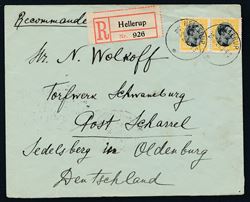 Recommandé
R Hellerup
Nr. 926
Hr. N. Wolkoff
Torfwerk Schwaneburg
Post Scharrel
Sedelsberg in Oldenburg
Deutschland